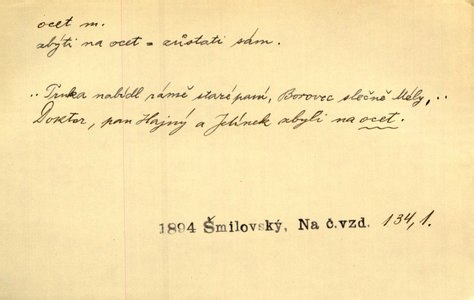 ocet m.
zbýti na ocet = zůstati sám.
.. Trnka nabídl rámě staré paní, Borovec slečně Mély, ..
Doktor, pan Hajný a Jelínek zbyli na ocet.
1894 Šmilovský, Na č.vzd. 134,1.